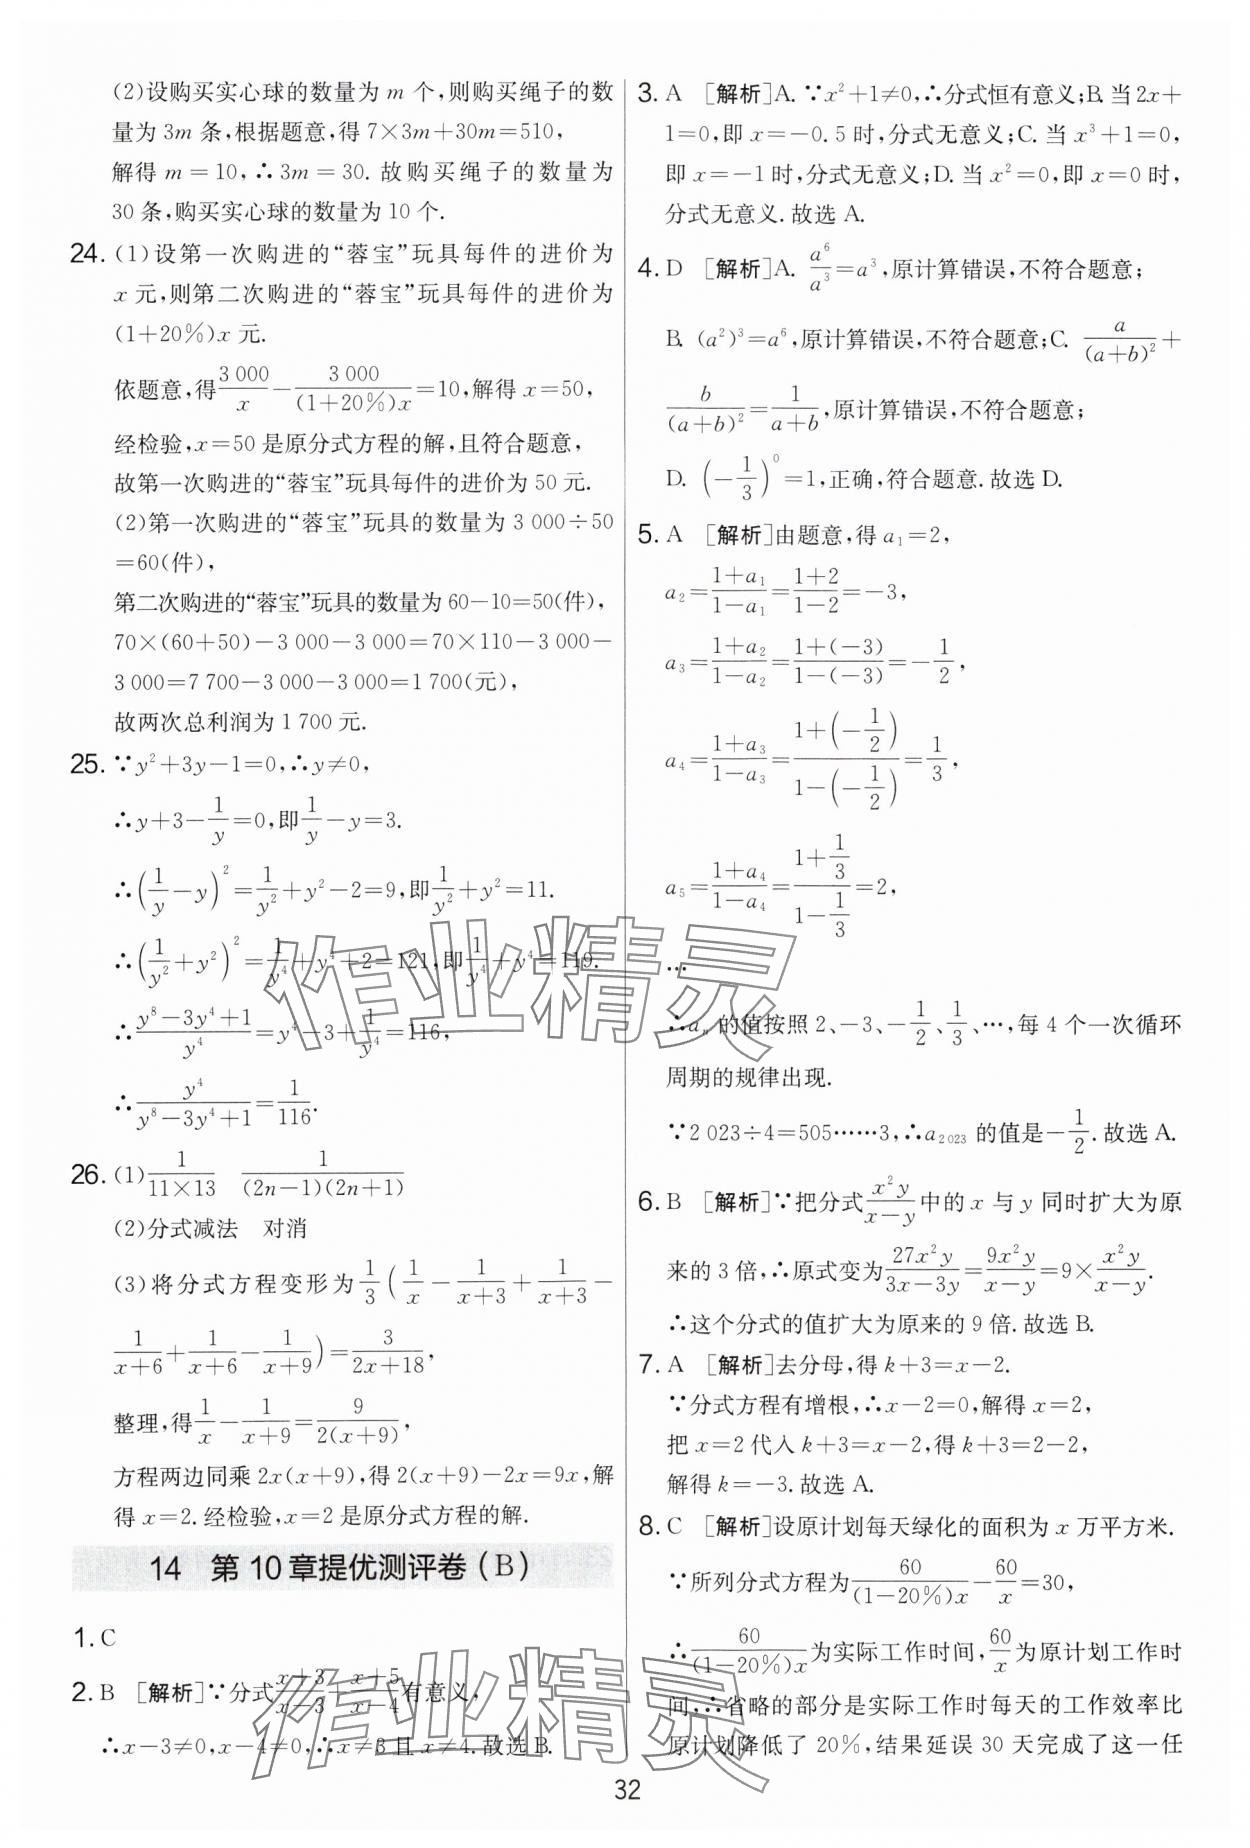 (2)设购买实心球的数量为 m 个,则购买绳子的数
量为 3m 条,根据题意,得 7×3m+30m=510,
解得 m=10,∴3m=30. 故购买绳子的数量为
30 条,购买实心球的数量为 10 个.
24. (1)设第一次购进的“蓉宝”玩具每件的进价为
x 元,则第二次购进的“蓉宝”玩具每件的进价为
(1+20%)x 元.
依题意,得 3 000/x - 3 000/((1+20%)x) =10,解得 x=50,
经检验,x=50 是原分式方程的解,且符合题意,
故第一次购进的“蓉宝”玩具每件的进价为 50 元.
(2)第一次购进的“蓉宝”玩具的数量为 3 000÷50
=60(件),
第二次购进的“蓉宝”玩具的数量为 60-10=50(件),
70×(60+50)-3 000-3 000=70×110-3 000-
3 000=7 700-3 000-3 000=1 700(元),
故两次总利润为 1 700 元.
25. ∵y²+3y-1=0,∴y≠0,
∴y+3-1/y=0,即1/y-y=3.
∴(1/y-y)²=1/y²+y²-2=9,即1/y²+y²=11.
∴(1/y²+y²)²=1/y⁴+y⁴+2=121,即1/y⁴+y⁴=119.
∴(y⁸-3y⁴+1)/y⁴=y⁴-3+1/y⁴=116,
∴y⁴/(y⁸-3y⁴+1)=1/116.
26. (1)1/(11×13)  1/((2n-1)(2n+1))
(2)分式减法 对消
(3)将分式方程变形为1/3(1/x-1/(x+3)+1/(x+3)-
1/(x+6)+1/(x+6)-1/(x+9))=3/(2x+18),
整理,得1/x-1/(x+9)=9/(2(x+9)),
方程两边同乘 2x(x+9),得 2(x+9)-2x=9x,解
得 x=2.经检验,x=2 是原分式方程的解.
14 第 10 章提优测评卷(B)
1. C
2. B [解析]∵分式(x+3)/(x-3)÷(x+5)/(x-4)有意义,
∴x-3≠0,x-4≠0,∴x≠3 且 x≠4.故选 B.
3. A [解析]A.∵x²+1≠0,∴分式恒有意义;B.当 2x+
1=0,即 x=-0.5 时,分式无意义;C. 当 x³+1=0,
即 x=-1 时,分式无意义;D. 当 x²=0,即 x=0 时,
分式无意义.故选 A.
4. D [解析]A. a⁶/a³=a³,原计算错误,不符合题意;
B. (a²)³=a⁶,原计算错误,不符合题意;C. a/(a+b)²+
b/(a+b)²=1/(a+b),原计算错误,不符合题意;
D. (-1/3)⁰=1,正确,符合题意.故选 D.
5. A [解析]由题意,得 a₁=2,
a₂=(1+a₁)/(1-a₁)=(1+2)/(1-2)=-3,
a₃=(1+a₂)/(1-a₂)=(1+(-3))/(1-(-3))=-1/2,
a₄=(1+a₃)/(1-a₃)=(1+(-1/2))/(1-(-1/2))=1/3,
a₅=(1+a₄)/(1-a₄)=(1+1/3)/(1-1/3)=2,
…
∴aₙ 的值按照 2、-3、-1/2、1/3、…,每 4 个一次循环
周期的规律出现.
∵2 023÷4=505……3,∴a₂₀₂₃ 的值是-1/2.故选 A.
6. B [解析]∵把分式x²y/(x-y)中的 x 与 y 同时扩大为原
来的 3 倍,∴原式变为27x²y/(3x-3y)=9x²y/(x-y)=9×x²y/(x-y).
∴这个分式的值扩大为原来的 9 倍.故选 B.
7. A [解析]去分母,得 k+3=x-2.
∵分式方程有增根,∴x-2=0,解得 x=2,
把 x=2 代入 k+3=x-2,得 k+3=2-2,
解得 k=-3.故选 A.
8. C [解析]设原计划每天绿化的面积为 x 万平方米.
∵所列分式方程为60/((1-20%)x)-60/x=30,
∴60/((1-20%)x)为实际工作时间,60/x为原计划工作时
间,∴省略的部分是实际工作时每天的工作效率比
原计划降低了 20%,结果延误 30 天完成了这一任
32
作业精灵
作业精灵